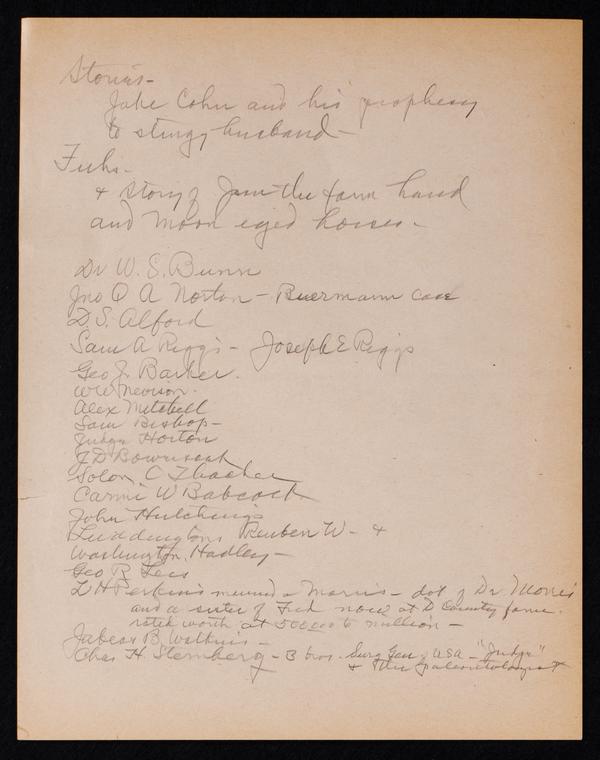 Stories -
Jake Cohn and his prophesy
to stingy husband -
Fuhs -
+ story of Jim the farm hand
and moon eyed horses -
Dr W. S. Bunn
Jno Q A Norton - Buermann case
D. S. Alford
Sam A Riggs - Joseph E Riggs
Geo J. Barker.
W W Nevison.
Alex Mitchell
Sam Bishop -
Judge Horton
J D Bowersock
Solon C Thacher
Carmi W Babcock
John Hutchings
Luddingtons Reuben W - +
Washington Hadley -
Geo R Lees
L H Perkins married a Morris - dot of Dr. Morris
and a sister of Fred now at D County farm.
rated worth at 500000 to million -
Jabeas B. Watkins -
Chas H Sternberg - 3 bros. Surg Gen USA - "Judge"
+ the paleontologist